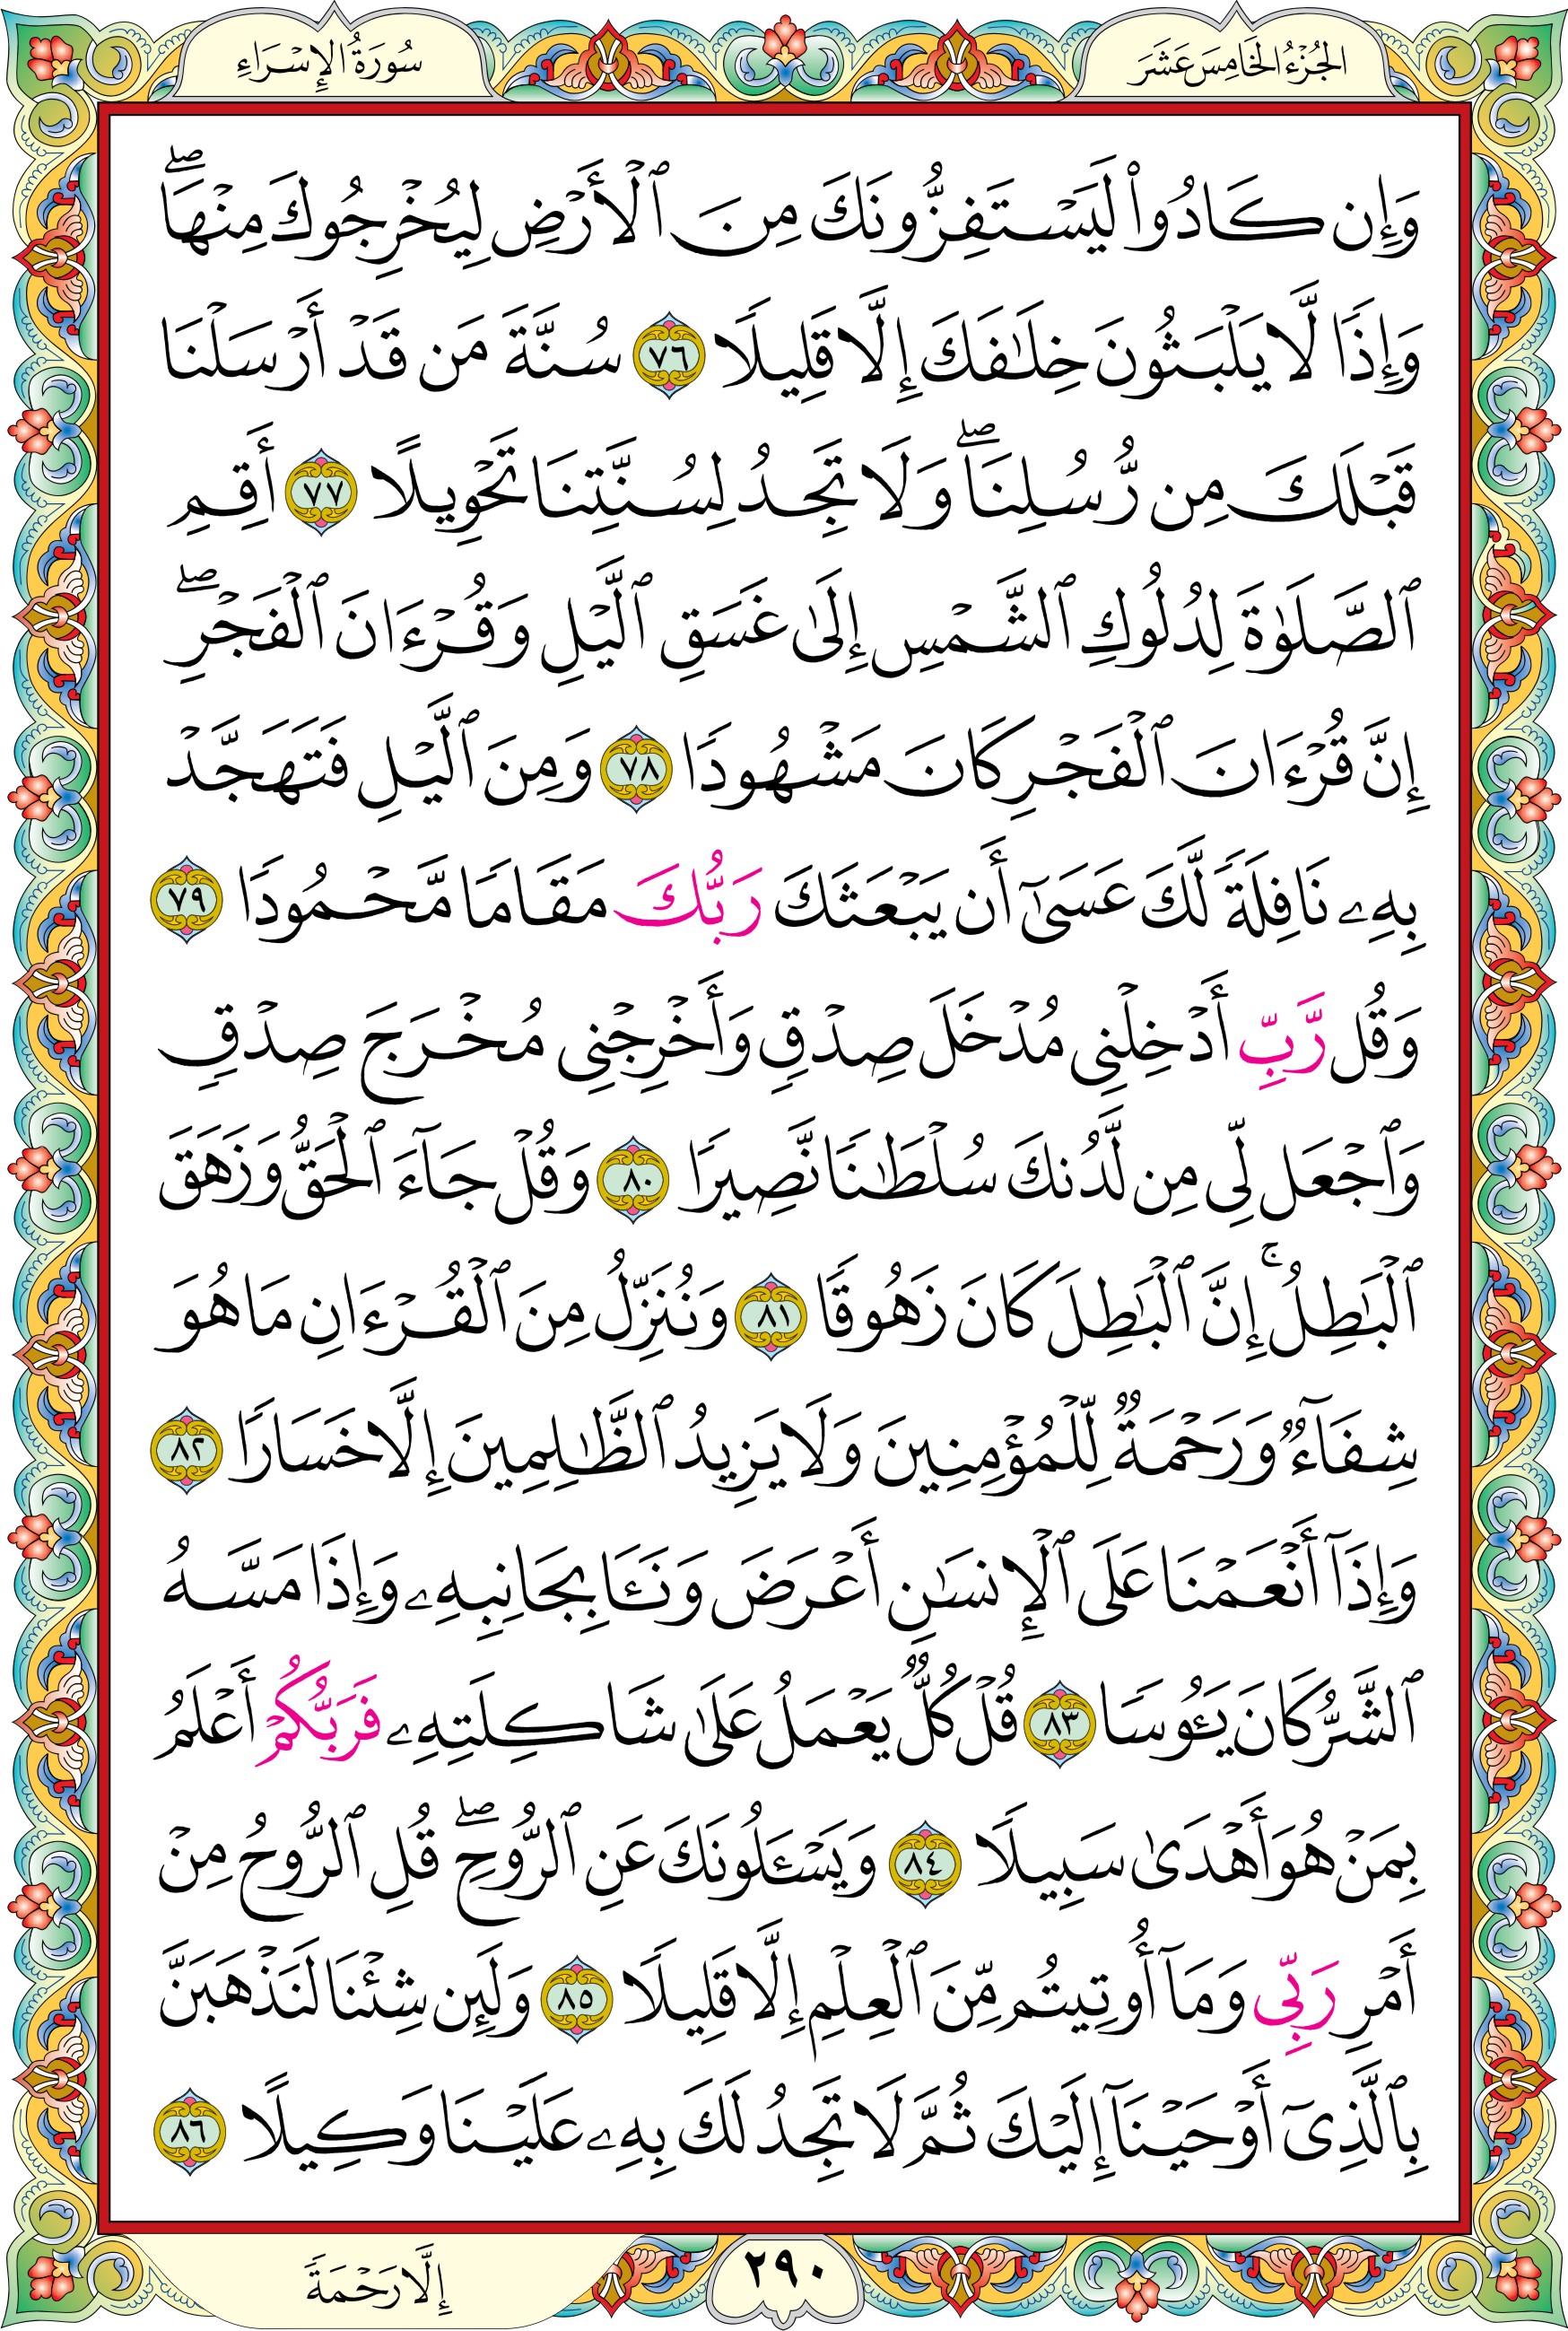 الجُزْءُ الخَامِسَ عَشَرَ
سُورَةُ الإِسْرَاءِ
وَإِن كَادُوا۟ لَيَسْتَفِزُّونَكَ مِنَ ٱلْأَرْضِ لِيُخْرِجُوكَ مِنْهَا ۖ
وَإِذًا لَّا يَلْبَثُونَ خِلَـٰفَكَ إِلَّا قَلِيلًا ٧٦ سُنَّةَ مَن قَدْ أَرْسَلْنَا
قَبْلَكَ مِن رُّسُلِنَا ۖ وَلَا تَجِدُ لِسُنَّتِنَا تَحْوِيلًا ٧٧ أَقِمِ
ٱلصَّلَوٰةَ لِدُلُوكِ ٱلشَّمْسِ إِلَىٰ غَسَقِ ٱلَّيْلِ وَقُرْءَانَ ٱلْفَجْرِ ۖ
إِنَّ قُرْءَانَ ٱلْفَجْرِ كَانَ مَشْهُودًا ٧٨ وَمِنَ ٱلَّيْلِ فَتَهَجَّدْ
بِهِۦ نَافِلَةً لَّكَ عَسَىٰٓ أَن يَبْعَثَكَ رَبُّكَ مَقَامًا مَّحْمُودًا ٧٩
وَقُل رَّبِّ أَدْخِلْنِى مُدْخَلَ صِدْقٍ وَأَخْرِجْنِى مُخْرَجَ صِدْقٍ
وَٱجْعَل لِّى مِن لَّدُنكَ سُلْطَـٰنًا نَّصِيرًا ٨٠ وَقُلْ جَآءَ ٱلْحَقُّ وَزَهَقَ
ٱلْبَـٰطِلُ ۚ إِنَّ ٱلْبَـٰطِلَ كَانَ زَهُوقًا ٨١ وَنُنَزِّلُ مِنَ ٱلْقُرْءَانِ مَا هُوَ
شِفَآءٌ وَرَحْمَةٌ لِّلْمُؤْمِنِينَ وَلَا يَزِيدُ ٱلظَّـٰلِمِينَ إِلَّا خَسَارًا ٨٢
وَإِذَآ أَنْعَمْنَا عَلَى ٱلْإِنسَـٰنِ أَعْرَضَ وَنَـَٔا بِجَانِبِهِۦ وَإِذَا مَسَّهُ
ٱلشَّرُّ كَانَ يَـُٔوسًا ٨٣ قُلْ كُلٌّ يَعْمَلُ عَلَىٰ شَاكِلَتِهِۦ فَرَبُّكُمْ أَعْلَمُ
بِمَنْ هُوَ أَهْدَىٰ سَبِيلًا ٨٤ وَيَسْـَٔلُونَكَ عَنِ ٱلرُّوحِ ۖ قُلِ ٱلرُّوحُ مِنْ
أَمْرِ رَبِّى وَمَآ أُوتِيتُم مِّنَ ٱلْعِلْمِ إِلَّا قَلِيلًا ٨٥ وَلَئِن شِئْنَا لَنَذْهَبَنَّ
بِٱلَّذِىٓ أَوْحَيْنَآ إِلَيْكَ ثُمَّ لَا تَجِدُ لَكَ بِهِۦ عَلَيْنَا وَكِيلًا ٨٦
٢٩٠
إِلَّا رَحْمَةً